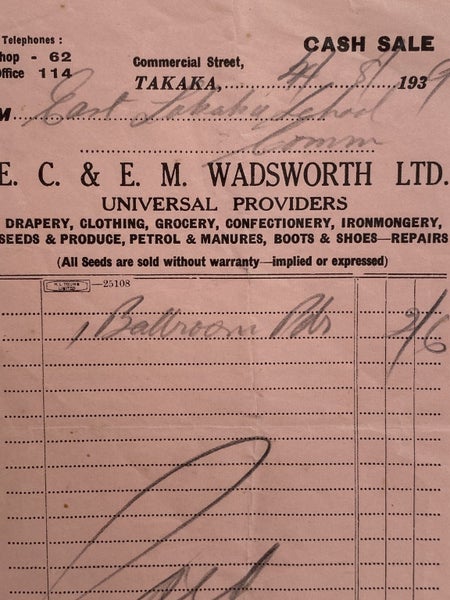 Telephones :
hop - 62
office 114
CASH SALE
Commercial Street,
TAKAKA, 4/8/1939
M East Takaka School
Comm
E. C. & E. M. WADSWORTH LTD.
UNIVERSAL PROVIDERS
DRAPERY, CLOTHING, GROCERY, CONFECTIONERY, IRONMONGERY,
SEEDS & PRODUCE, PETROL & MANURES, BOOTS & SHOES—REPAIRS
(All Seeds are sold without warranty—implied or expressed)
—25108
1 Ballroom Pdr 2/6